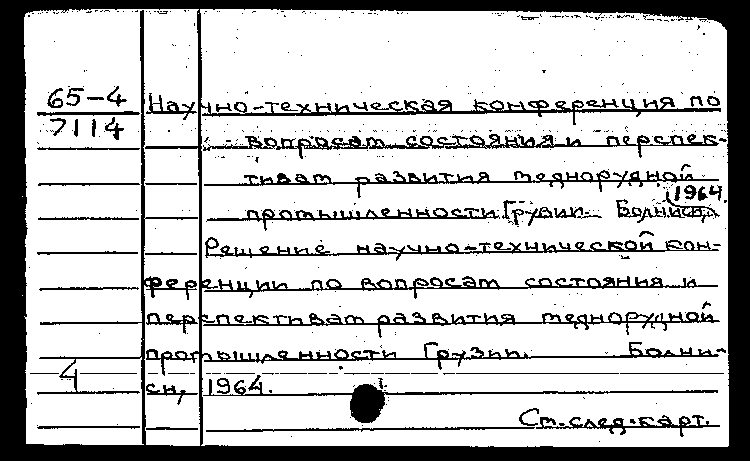 65-4
7114
Научно-техническая конференция по
вопросам состояния и перспек-
тивам развития меднорудной
промышленности Грузии. Болниси, 1964.
Решение научно-технической кон-
ференции по вопросам состояния и
перспективам развития меднорудной
промышленности Грузии. Болни-
4
си, 1964.
См.след.карт.